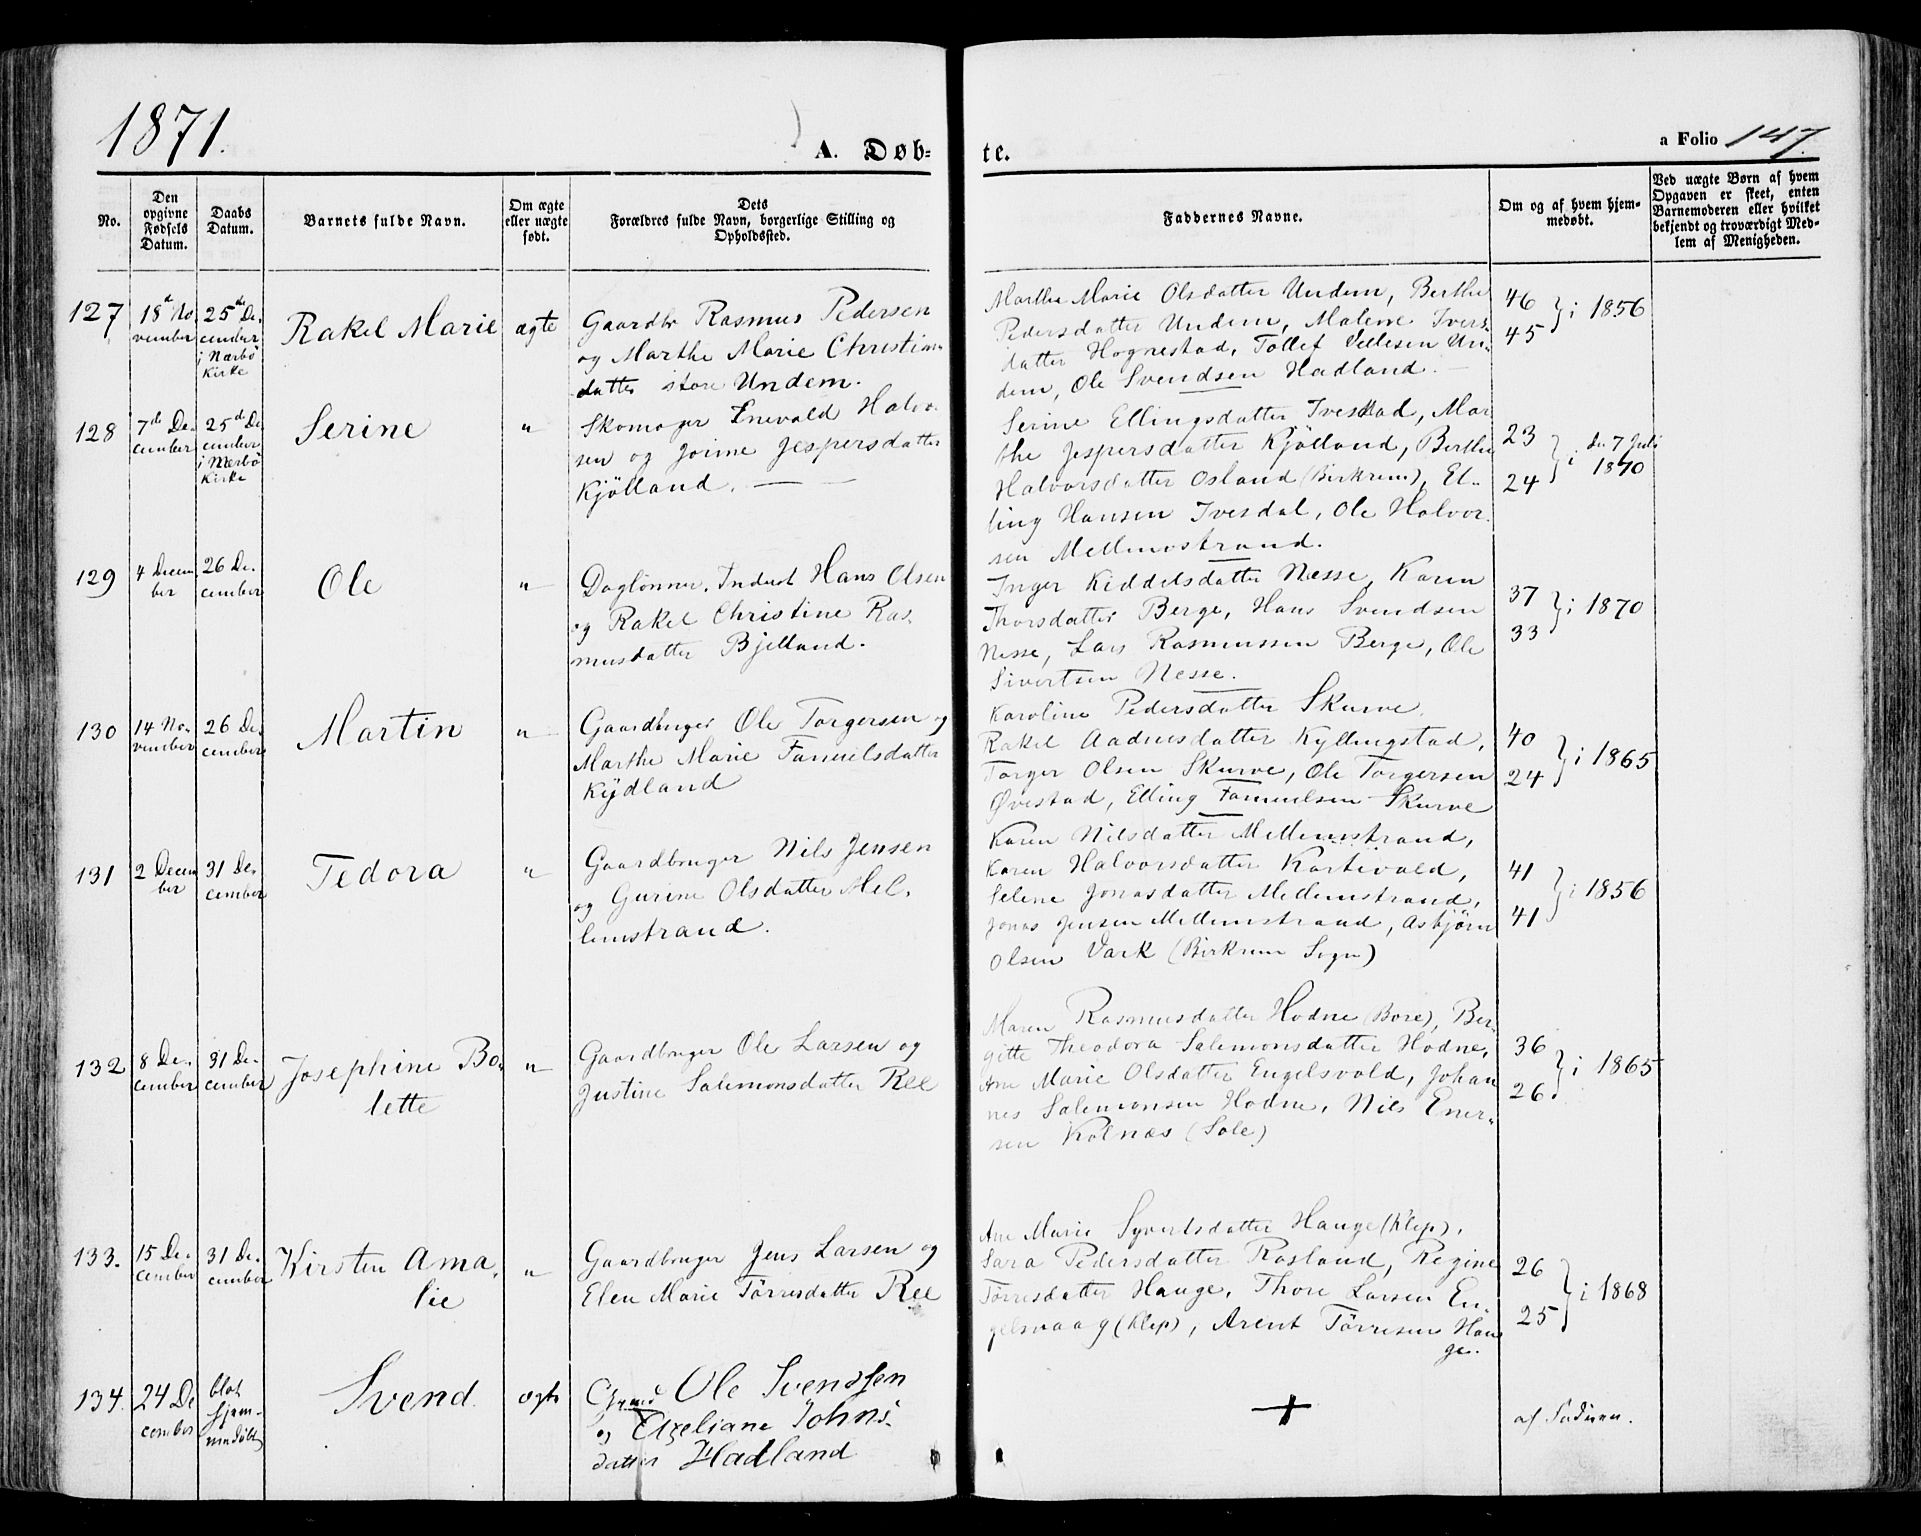 1871.
A. Døb-
te.
a Folio 147.
No.
Den opgivne Fødsels Datum.
Daabs Datum.
Barnets fulde Navn.
Om ægte eller uægte født.
Dets Forældres fulde Navn, borgerlige Stilling og Opholdssted.
Faddernes Navne.
Om og af hvem hjemmedøbt.
Ved uægte Børn af hvem Opgaven er skeet, enten Barnemoderen eller hvilket bekjendt og troværdigt Medlem af Menigheden.
127
18de No
vember
25de De
cember
i Nærbø
Kirke
Rakel Marie
ægte
Gaardbr Rasmus Pedersen
og Marthe Marie Christians
datter store Undem.
Marthe Marie Olsdatter Undem, Berthe
Pedersdatter Undem, Malene Ivers
datter Hognestad, Tollef Vellesen Un-
dem, Ole Svendsen Hadland.
46
45
i 1856
128
7de De
cember
25de De
cember
i Nærbø
Kirke
Serine
"
Skomager Enevald Halvor
sen og Jorine Jespersdatter
Kjölland.
Serine Ellingsdatter Ivesdad, Mar
the Jespersdatter Kjölland, Berthe
Halvorsdatter Osland (Birkrem), El-
ling Hansen Ivesdal, Ole Halvor
sen Mellemstrand.
23
24
i den 7 Juli
1870
129
4 Decem
ber
26 De-
cember
Ole
"
Daglönner, Inderst Hans Olsen
og Rakel Christine Ras
musdatter Bjelland.
Inger Kiddelsdatter Nesse, Karen
Thorsdatter Berge, Hans Svendsen
Nesse, Lars Rasmussen Berge, Ole
Sivertsen Nesse.
37
33
i 1870
130
14 No-
vember
26 De
cember
Martin
"
Gaardbruger Ole Torgersen og
Marthe Marie Samuelsdatter
Kydland
Karoline Pedersdatter Skurve,
Rakel Aadnesdatter Kyllingstad,
Torger Olsen Skurve, Ole Torgersen
Øvestad, Elling Samuelsen Skurve
40
24
i 1865
131
2 Decem
ber
31 De
cember
Tedora
"
Gaardbruger Nils Jensen
og Gurine Olsdatter Mel-
lemstrand.
Karen Nilsdatter Mellemstrand,
Karen Halvorsdatter Kartevold,
Selene Jonasdatter Mellemstrand,
Jonas Jensen Mellemstrand, Asbjörn
Olsen Vark (Birkrem Sogn)
41
41
i 1856
132
8 De-
cember
31 De-
cember
Josephine Bo-
lette
"
Gaardbruger Ole Larsen og
Justine Salemonsdatter Ree
Maren Rasmusdatter Hodne (Bore), Ber-
gitte Theodora Salemonsdatter Hodne,
Ane Marie Olsdatter Engelsvold, Johan
nes Salemonsen Hodne, Nils Ener-
sen Kolnæs (Sole)
36
26
i 1865
133.
15 De-
cember
31 De-
cember
Kirsten Ama-
lie
"
Gaardbruger Jens Larsen og
Elen Marie Törresdatter Ree
Ane Marie Syvertsdatter Hauge (Klep),
Sara Pedersdatter Rosland, Regine
Törresdatter Hauge, Thore Larsen En-
gelsvaag (Klep), Arent Törresen Hau
ge.
26
25
i 1868
134.
24 De
cember
blot
hjem-
medöbt
Svend
ægte
Ole Svendsen
og Axeliane Johns-
datter Hadland
+
af Faderen.